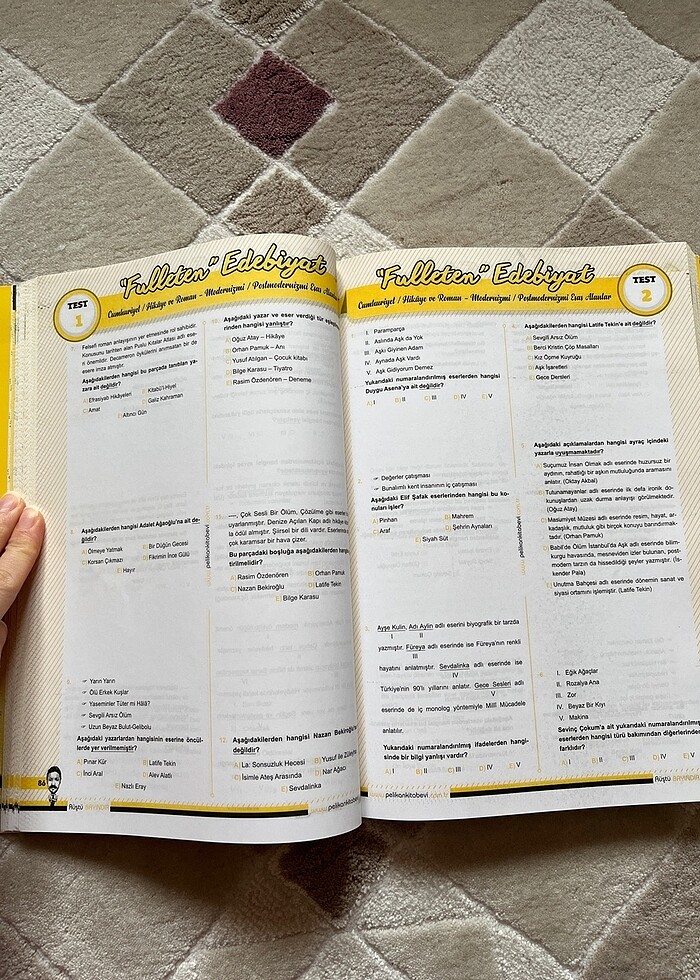 "Fulleten" Edebiyat
Cumhuriyet / Hikâye ve Roman – Modernizmi / Postmodernizmi Esas Alanlar
TEST
1
Felsefi roman anlayışının yer etmesinde rol sahibidir.
Konusunu tarihten alan Puslu Kıtalar Atlası adlı ese-
ri önemlidir. Decameron öykülerini anımsatan bir de
esere imza atmıştır.
Aşağıdakilerden hangisi bu parçada tanıtılan ya-
zara ait değildir?
A) Efrasiyab Hikâyeleri
B) Kitabü'l-Hiyel
C) Amat
D) Galiz Kahraman
E) Altıncı Gün
Aşağıdakilerden hangisi Adalet Ağaoğlu'na ait de-
ğildir?
A) Ölmeye Yatmak
B) Bir Düğün Gecesi
C) Korsan Çıkmazı
D) Fikrimin İnce Gülü
E) Hayır
Yarın Yarın
Ölü Erkek Kuşlar
Yaseminler Tüter mi Hâlâ?
Sevgili Arsız Ölüm
Uzun Beyaz Bulut-Gelibolu
Aşağıdaki yazarlardan hangisinin eserine öncül-
lerde yer verilmemiştir?
A) Pınar Kür
B) Latife Tekin
C) İnci Aral
D) Alev Alatlı
E) Nazlı Eray
86
Rüştü BAYINDIR
10. Aşağıdaki yazar ve eser verdiği tür eşleştir
rinden hangisi yanlıştır?
A) Oğuz Atay – Hikâye
B) Orhan Pamuk – Anı
C) Yusuf Atılgan – Çocuk kitabı
D) Bilge Karasu – Tiyatro
E) Rasim Özdenören – Deneme
11. ----, Çok Sesli Bir Ölüm, Çözülme gibi eserle
uyarlanmıştır. Denize Açılan Kapı adlı hikâye
la ödül almıştır. Şiirsel bir dili vardır. Eserlerinde
çok karamsar bir hava çizer.
Bu parçadaki boşluğa aşağıdakilerden hangi
tirilmelidir?
A) Rasim Özdenören
B) Orhan Pamuk
C) Nazan Bekiroğlu
D) Latife Tekin
E) Bilge Karasu
12. Aşağıdakilerden hangisi Nazan Bekiroğlu'n
değildir?
A) La: Sonsuzluk Hecesi
B) Yusuf ile Züley
C) İsimle Ateş Arasında
D) Nar Ağacı
E) Sevdalinka
pelikankitabevi
www.pelikankitabevi
"Fulleten" Edebiyat
Cumhuriyet / Hikâye ve Roman – Modernizmi / Postmodernizmi Esas Alanlar
TEST
2
I. Paramparça
II. Aslında Aşk da Yok
III. Aşkı Giyinen Adam
IV. Aynada Aşk Vardı
V. Aşk Gidiyorum Demez
Yukarıdaki numaralandırılmış eserlerden hangisi
Duygu Asena'ya ait değildir?
A) I
B) II
C) III
D) IV
E) V
Değerler çatışması
Bunalımlı kent insanının iç çatışması
Aşağıdaki Elif Şafak eserlerinden hangisi bu ko-
nuları işler?
A) Pinhan
B) Mahrem
C) Araf
D) Şehrin Aynaları
E) Siyah Süt
3. Ayşe Kulin, Adı Aylin adlı eserini biyografik bir tarzda
I II
yazmıştır. Füreya adlı eserinde ise Füreya'nın renkli
III
hayatını anlatmıştır. Sevdalinka adlı eserinde ise
IV
Türkiye'nin 90'lı yıllarını anlatır. Gece Sesleri adlı
V
eserinde de iç monolog yöntemiyle Millî Mücadele
anlatılır.
Yukarıdaki numaralandırılmış ifadelerden hangi-
sinde bir bilgi yanlışı vardır?
A) I
B) II
C) III
D) IV
E) V
www.pelikankitabevi.com.tr
pelikankitabevi
Aşağıdakilerden hangisi Latife Tekin'e ait değildir?
A) Sevgili Arsız Ölüm
B) Berci Kristin Çöp Masalları
C) Kız Öpme Kuyruğu
D) Aşk İşaretleri
E) Gece Dersleri
5. Aşağıdaki açıklamalardan hangisi ayraç içindeki
yazarla uyuşmamaktadır?
A) Suçumuz İnsan Olmak adlı eserinde huzursuz bir
aydının, rahatlığı bir aşkın mutluluğunda aramasını
anlatır. (Oktay Akbal)
B) Tutunamayanlar adlı eserinde ilk defa ironik do-
kunuşlardan uzak durma anlayışı görülmektedir.
(Oğuz Atay)
C) Masumiyet Müzesi adlı eserinde resim, hayat, ar-
kadaşlık, mutluluk gibi birçok konuyu barındırmak-
tadır. (Orhan Pamuk)
D) Babil'de Ölüm İstanbul'da Aşk adlı eserinde bilim-
kurgu havasında, mesneviden izler bulunan, post-
modern tarzın da hissedildiği şeyler yazmıştır. (İs-
kender Pala)
E) Unutma Bahçesi adlı eserinde dönemin sanat ve
siyasi ortamını işlemiştir. (Latife Tekin)
I. Eğik Ağaçlar
II. Rozalya Ana
III. Zor
IV. Beyaz Bir Kıyı
V. Makina
Sevinç Çokum'a ait yukarıdaki numaralandırılmış
eserlerden hangisi türü bakımından diğerlerinden
farklıdır?
A) I
B) II
C) III
D) IV
E) V
Rüştü BAYINDIR